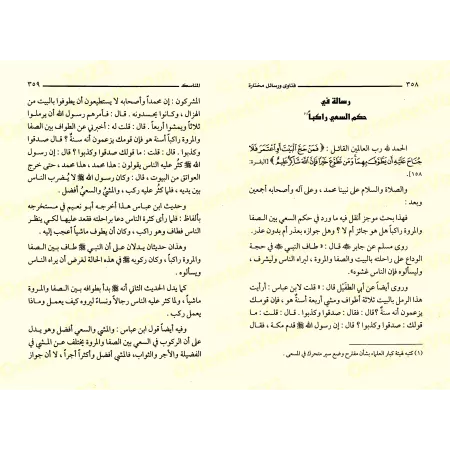 ٣٥٨ فتاوى ورسائل مختارة
رسالة في
حكم السعي راكباً(١)
الحمد لله رب العالمين القائل : ﴿ فَمَنْ حَجَّ الْبَيْتَ أَوِ اعْتَمَرَ فَلَا
جُنَاحَ عَلَيْهِ أَن يَطَّوَّفَ بِهِمَا وَمَن تَطَوَّعَ خَيْرًا فَإِنَّ اللَّهَ شَاكِرٌ عَلِيمٌ ﴾ [البقرة:
١٥٨].
والصلاة والسلام على نبينا محمد ، وعلى آله وأصحابه أجمعين
وبعد :
فهذا بحث موجز أنقل فيه ما ورد في حكم السعي بين الصفا
والمروة راكباً هل هو جائز أم لا ؟ وهل جوازه بعذر أم بدون عذر.
روى مسلم عن جابر ﷺ قال : « طاف النبي ﷺ في حجة
الوداع على راحلته بالبيت والصفا والمروة ، ليراه الناس وليشرف ،
وليسألوه فإن الناس غشوه».
وروى أيضاً عن أبي الطفيل قال : « قلت لابن عباس : أرأيت
هذا الرمل بالبيت ثلاثة أطواف ومشي أربعة أسنة هو ، فإن قومك
يزعمون أنه سنة ؟ قال : فقال : صدقوا وكذبوا . قال : قلت : ما
قولك : صدقوا وكذبوا ؟ قال : إن رسول الله ﷺ قدم مكة ، فقال
(١) كتبه لهيئة كبار العلماء بشأن مقترح وضع سير متحرك في المسعى .
المناسك ٣٥٩
المشركون : إن محمداً وأصحابه لا يستطيعون أن يطوفوا بالبيت من
الهزال ، وكانوا يحسدونه . قال : فأمرهم رسول الله ﷺ أن يرملوا
ثلاثاً ويمشوا أربعاً. قال : قلت له : أخبرني عن الطواف بين الصفا
والمروة راكباً أسنة هو فإن قومك يزعمون أنه سنة ؟ قال صدقوا
وكذبوا . قال : قلت : ما قولك صدقوا وكذبوا ؟ قال : إن رسول
الله ﷺ كثر عليه الناس يقولون : هذا محمد ، هذا محمد ، حتى خرج
العواتق من البيوت ، قال : وكان رسول الله ﷺ لا يُضرب الناس
بين يديه ، فلما كثر عليه ركب ، والمشي والسعي أفضل .
وحديث ابن عباس هذا أخرجه أبو نعيم في مستخرجه
بألفاظ : فلما رأى كثرة الناس دعا براحلته فقعد عليها لكي ينظر
الناس فطاف وهو راكب ، وكان أن يطوف ماشياً أعجب إليه .
وهذان حديثان يدلان على أن النبي ﷺ طاف بين الصفا
والمروة راكباً ، وكان ركوبه ﷺ في هذه الحالة لغرض أن يراه الناس
ويسألوه .
كما يدل الحديث الثاني أنه ﷺ بدأ بطوافه بين الصفا والمروة
ماشياً ، ولما كثر عليه الناس رجالاً ونساءً ليروه كيف يعمل وماذا
يعمل ركب .
وفيه أيضاً قول ابن عباس : والمشي والسعي أفضل وهو يدل
على أن الركوب في السعي بين الصفا والمروة يختلف عن المشي في
الفضيلة والأجر والثواب ، فالمشي أفضل وأكثر أجراً ، لا أن جواز